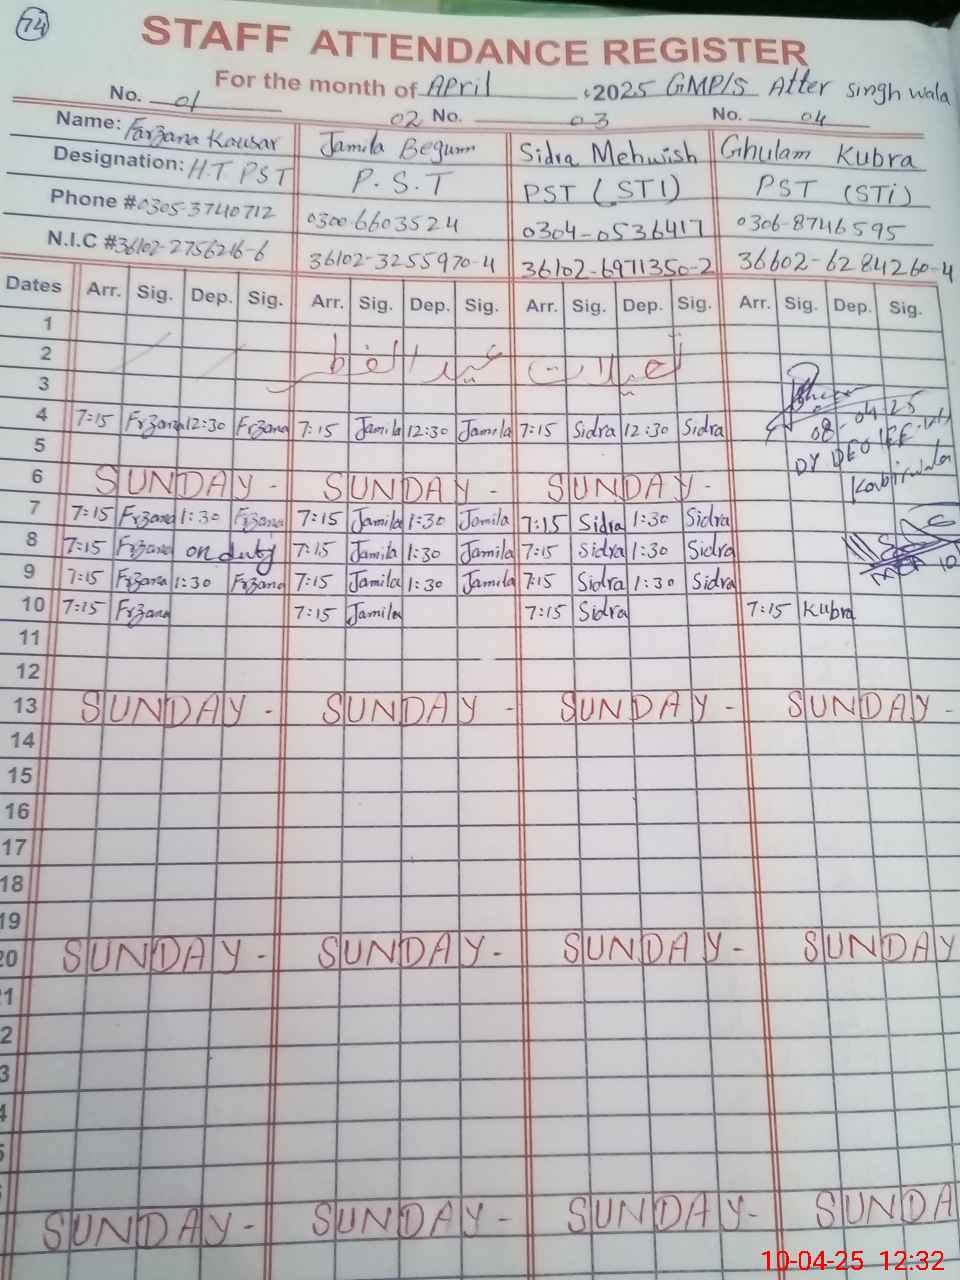 74
STAFF ATTENDANCE REGISTER
For the month of April 2025 GMP/S Atter singh wala
No. 01 02 No. 03 No. 04
Name: Farzana Kausar Jamila Begum Sidra Mehwish Ghulam Kubra
Designation: H.T PST P.S.T PST (STI) PST (STi)
Phone #0305-3740712 0300-6603524 0304-0536417 0306-8746595
N.I.C #36102-2756216-6 36102-3255970-4 36102-6971350-2 36602-6284260-4
Dates Arr. Sig. Dep. Sig. Arr. Sig. Dep. Sig. Arr. Sig. Dep. Sig. Arr. Sig. Dep. Sig.
1
2 تعطیلات عید الفطر
3
4 7:15 Frzana 12:30 Frzana 7:15 Jamila 12:30 Jamila 7:15 Sidra 12:30 Sidra
08-04-25
DY DEO
Kabirwala
5
6 SUNDAY - SUNDAY - SUNDAY -
7 7:15 Frzana 1:30 Frzana 7:15 Jamila 1:30 Jamila 7:15 Sidra 1:30 Sidra
8 7:15 Frzana on duty 7:15 Jamila 1:30 Jamila 7:15 Sidra 1:30 Sidra
9 7:15 Frzana 1:30 Frzana 7:15 Jamila 1:30 Jamila 7:15 Sidra 1:30 Sidra
10 7:15 Frzana 7:15 Jamila 7:15 Sidra 7:15 Kubra
11
12
13 SUNDAY - SUNDAY - SUNDAY - SUNDAY -
14
15
16
17
18
19
20 SUNDAY - SUNDAY - SUNDAY - SUNDAY
1
2
3
4
5
SUNDAY - SUNDAY - SUNDAY - SUNDA
10-04-25 12:32